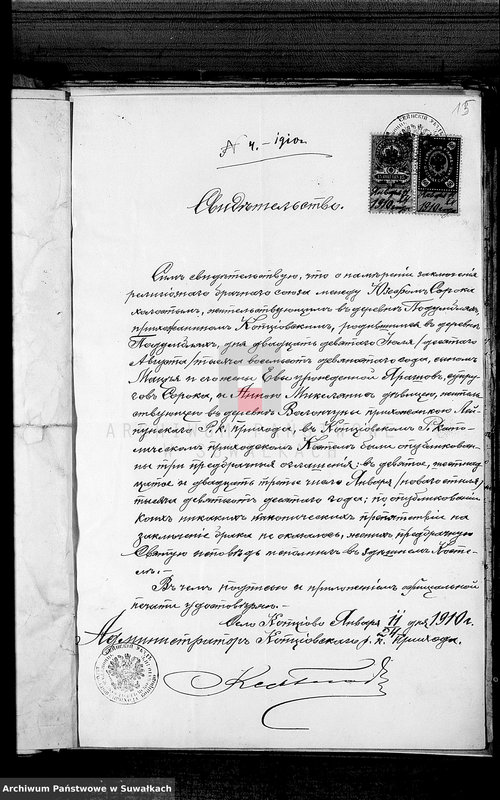 13
№ 4. – 1910 г.
Свидѣтельство.
Симъ свидѣтельствую, что о намѣреніи заключенія
религіознаго брачнаго союза между Юзефомъ Сорока
холостымъ, жительствующимъ въ деревнѣ
прихожаниномъ Копціовскимъ, родившимся въ деревнѣ
дня двадцать девятаго Іюля /десятаго
Августа/ тысяча восемьсотъ девяностаго года, сыномъ
и его жены Евы урожденной супру-
говъ Сорока, и Анною дѣвицею, житель-
ствующею въ деревнѣ прихожанкою Лей-
пунскаго Р. к. прихода, въ Копціовскомъ Р. Като-
лическомъ приходскомъ Костелѣ были опубликова-
ны три предбрачныя оглашенія: въ девятое, шестнад-
цатое и двадцать третье числа Января /новаго стиля/
тысяча девятьсотъ десятаго года; по опубликованіи
коихъ никакихъ каноническихъ препятствій на
заключеніе брака не оказалось, женихъ предбрачную
Святую исповѣдь исполнилъ въ здѣшнемъ Косте-
лѣ. –
Въ чемъ подписью и приложеніемъ оффиціальной
печати удостовѣряю. –
Село Копціово Января 11/24 дня 1910 г.
Администраторъ Копціовскаго р. к. Прихода.
ARCHIWUM PAŃSTWOWE
Archiwum Państwowe w Suwałkach